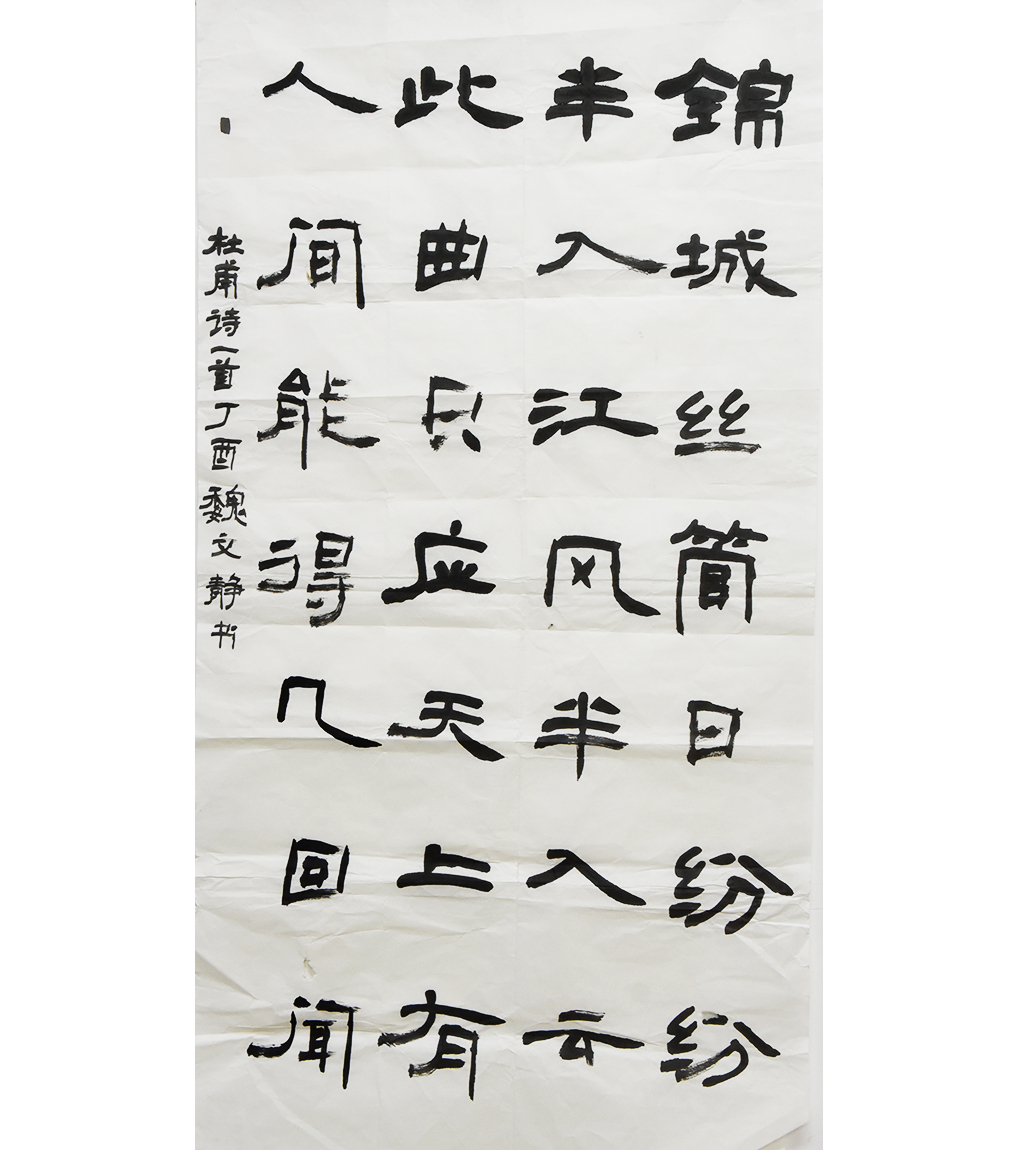 锦城丝管日纷纷
半入江风半入云
此曲只应天上有
人间能得几回闻
杜甫诗一首丁酉魏文静书